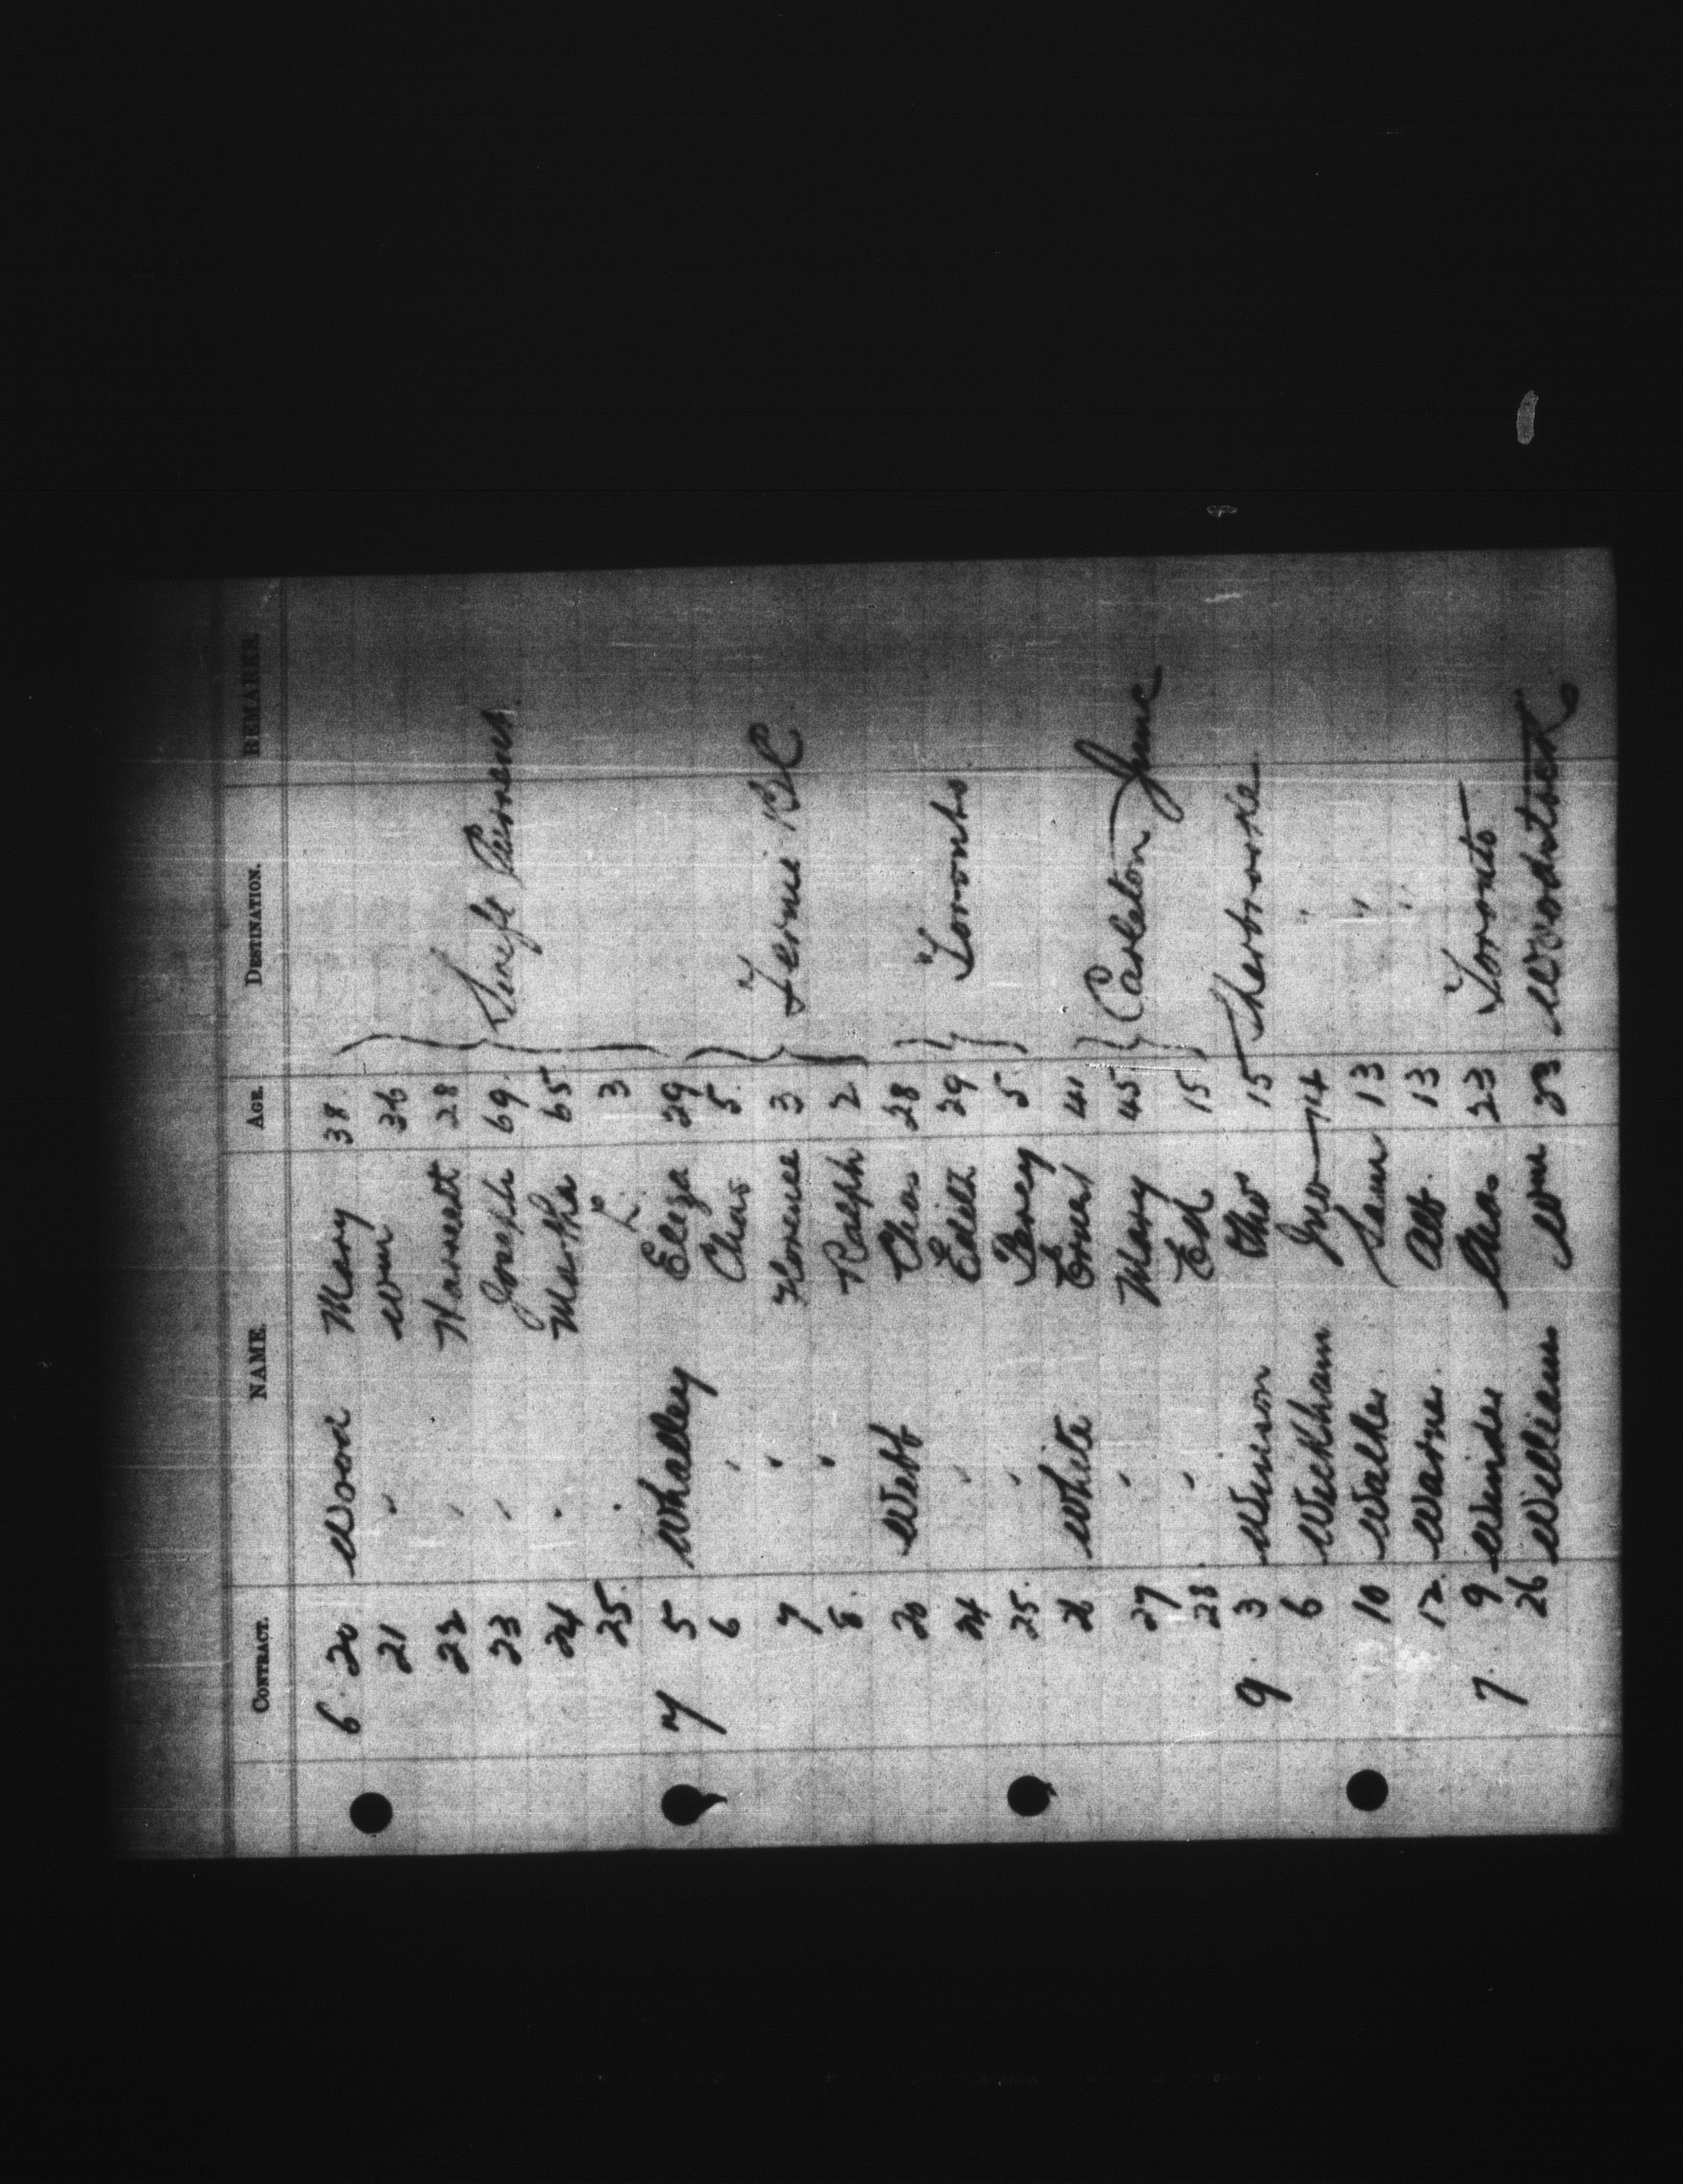 CONTRACT. NAME. AGE. DESTINATION. REMARKS.
6. 20 Wood Mary 38.
21 " Wm 36
22 " Harriett 28
23 " Joseph 69.
24 " Martha 65
25. " 3
7 5 Whalley Eliza 29
6 " Chas 5.
7 " Florence 3 Fernie BC
8. " Ralph 2
20 Webb Chas 28
24 " Edith 29 Toronto
25. " Percy 5
26 White 41
27 " Mary 45 Carleton Junc
28 " Ed 15
9. 3 Tho 15 Sherbrooke
6 Wickham Jno 14 "
10 Walker Sam 13 "
12. Warne Alb. 13 "
7. 9 Winder Chas 23 Toronto
26 William Wm 23 Woodstock